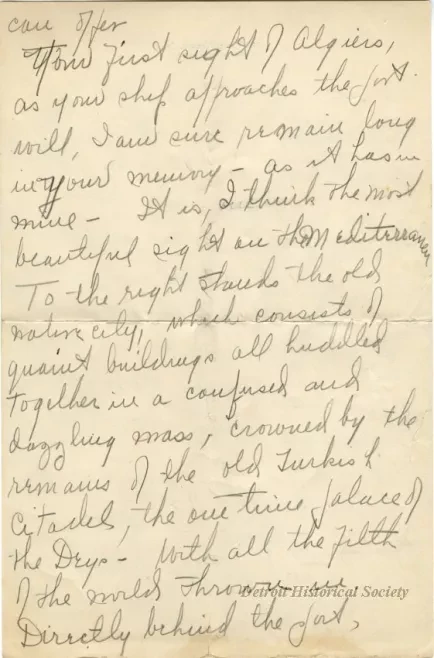 can offer
Your first sight of Algiers,
as your ship approaches the port
will, I am sure remain long
in your memory - as it has in
mine - It is, I think the most
beautiful sight on the Mediterranean
To the right stands the old
native city, which consists of
quaint buildings all huddled
together in a confused and
dazzling mass, crowned by the
remains of the old Turkish
Citadel, the one time palace of
the Deys - With all the filth
of the world thrown in.
Detroit Historical Society
Directly behind the port,